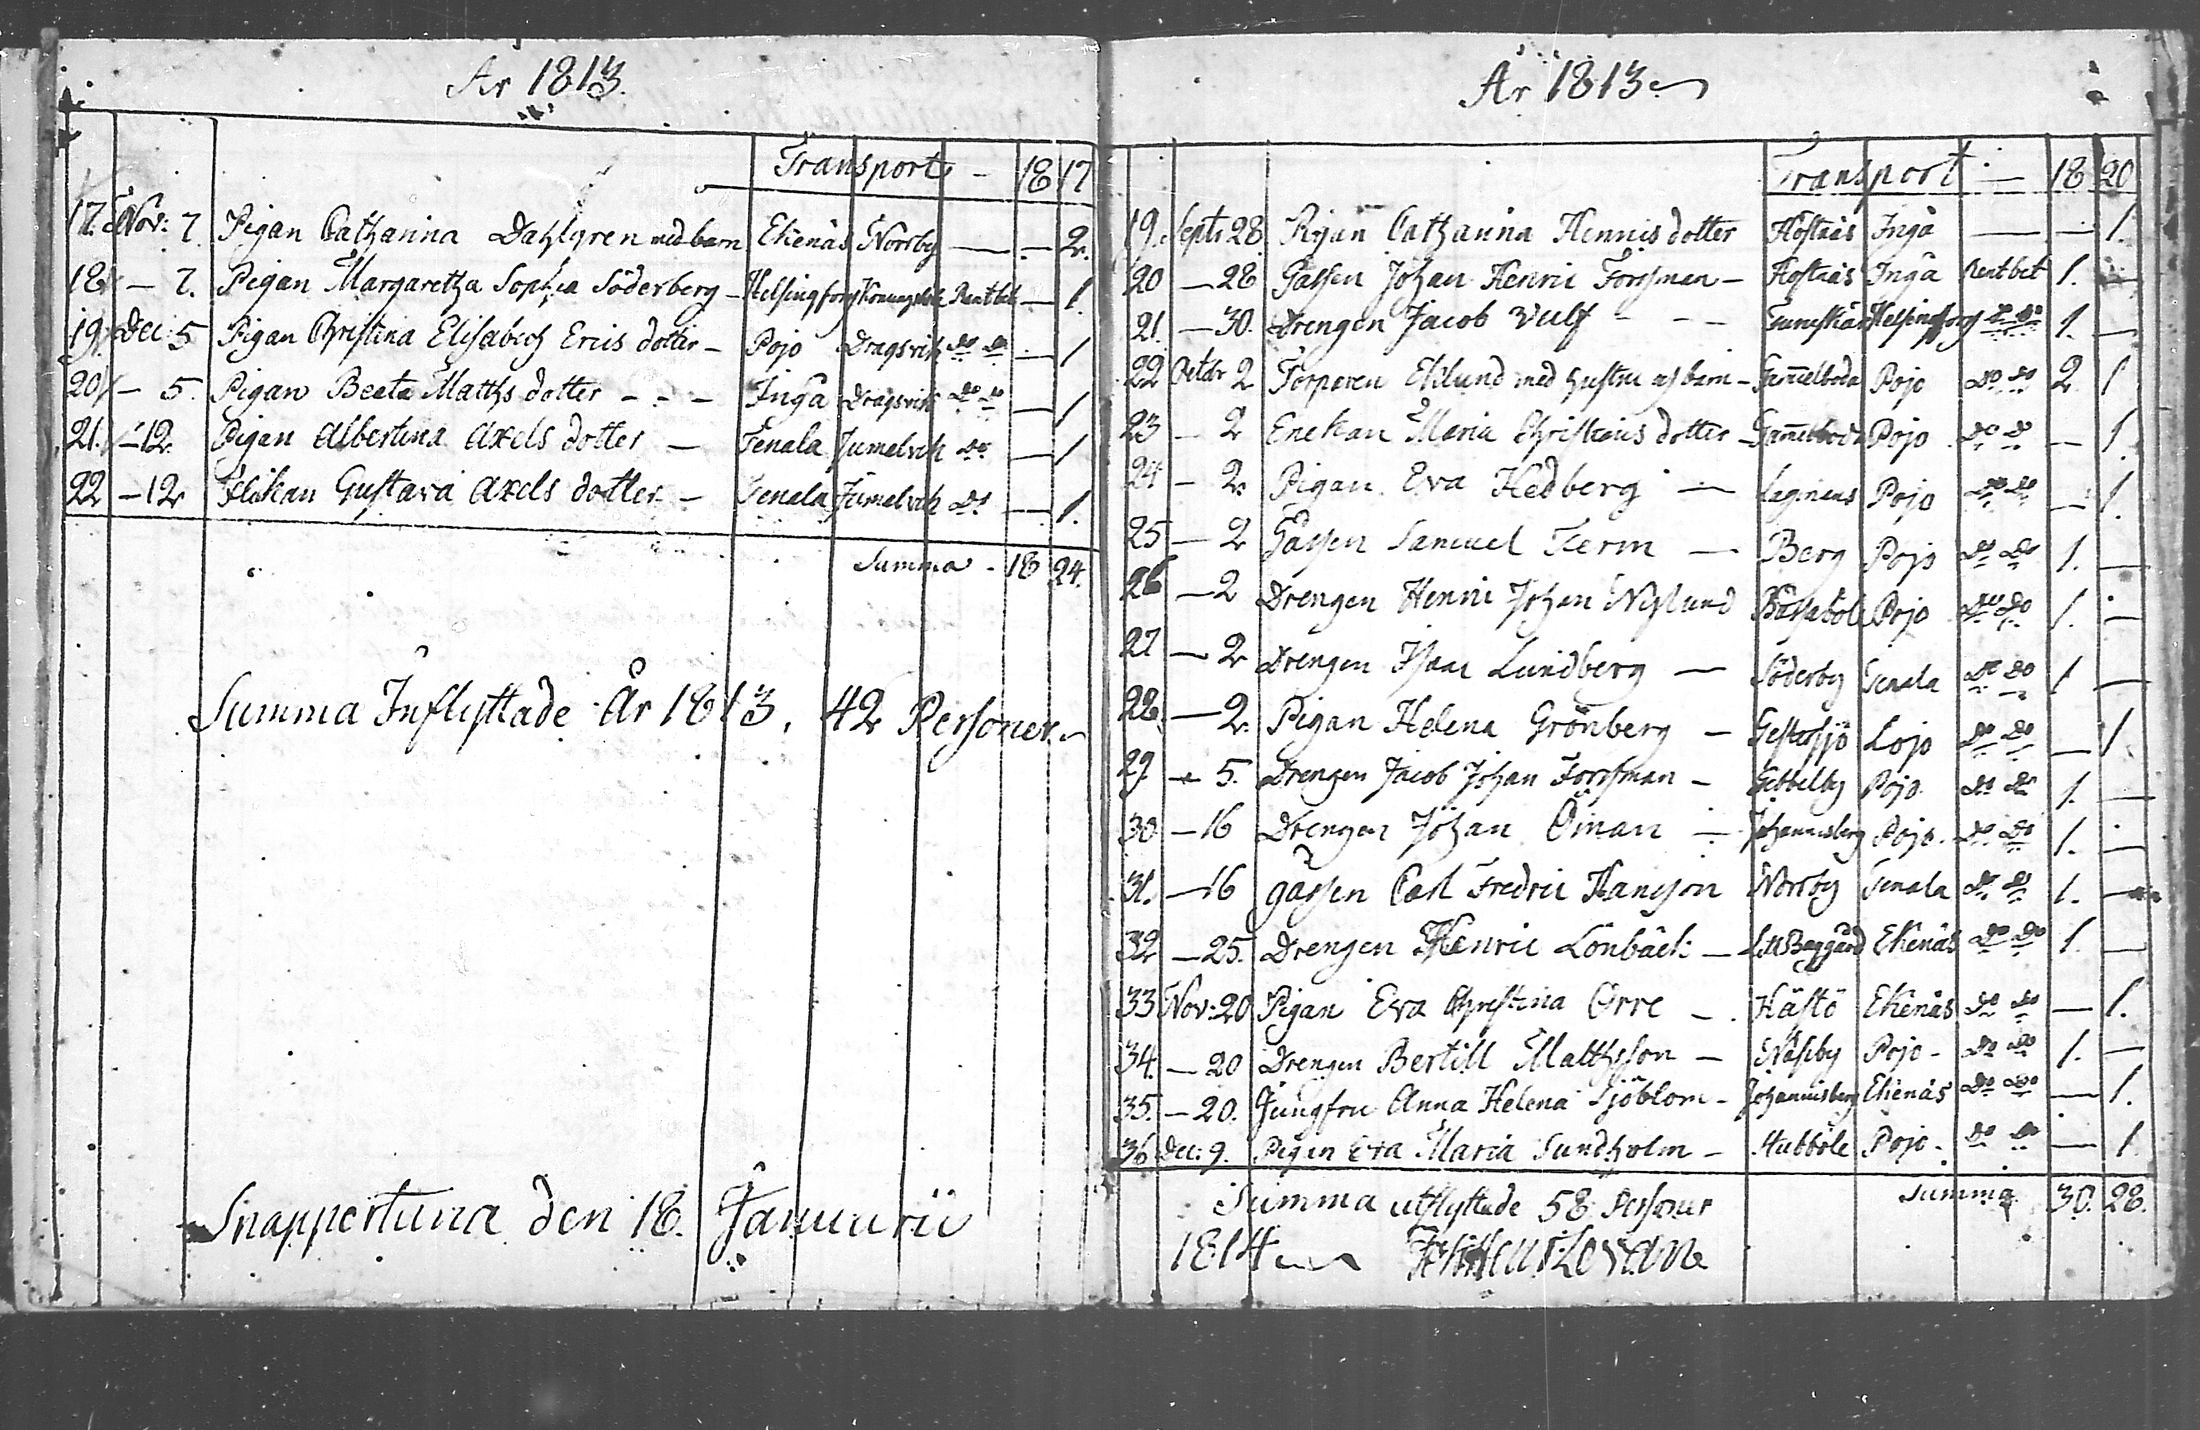 År 1813.
Transport - 18 17
17. Nov: 7. Pigan Catharina Dahlgren med barn Ekenäs Norrby — — 2.
18. — 7. Pigan Margaretha Sophia Söderberg — Helsingfors Rent bet — 1
19. Dec: 5 Pigan Christina Elisabeth Erics dotter — Pojo Dragsvik do do — 1
20. — 5. Pigan Beata Matths dotter - - - Inga Dragsvik do do — 1
21. — 12. Pigan Albertina Axels dotter — Tenala Jumelvik do — 1
22 — 12 Flickan Gustava Axels dotter — Tenala Jumelvik do — 1.
Summa - 18 24.
Summa Inflyttade År 1813. 42 Personer.
Snappertuna den 18. Januarii
År 1813
Transport — 18 20
19. Septr 28 Pigan Catharina Henrics dotter Höstnäs Ingå — — 1.
20 — 28 Gåssen Johan Henric Forsman — Höstnäs Inga Rent bet 1. —
21. — 30. Drengen Jacob Vulf - - - Helsingfors do do 1. —
22 Octbr 2 Torparen Eklund med hustru af barn — Gam̄elboda Pojo do do 2 1
23 — 2 Enekan Maria Christians dotter — Gam̄elboda Pojo do do — 1.
24 — 2. Pigan Eva Hedberg — Pojo do do — 1.
25 — 2 Gåssen Samuel Term — Berg Pojo do do 1. —
26 — 2 Drengen Henric Johan Nylund Båssaböle Pojo do do 1. —
27 — 2 Drengen Isaac Lundberg — Söderby Tenala do do 1 —
28. — 2. Pigan Helena Grönberg — Lojo do do — 1.
29. — 5. Drengen Jacob Johan Forsman — Gebbelby Pojo. do do 1. —
30 — 16 Drengen Johan Öman — Johannisberg Pojo. do do 1. —
31. — 16 gåssen Carl Fredric Hansson Norrby Tenala do do 1. —
32 — 25. Drengen Henric Lönbäck — Ekenäs do do 1. —
33 Nov: 20 Pigan Eva Christina Orre — Hästö Ekenäs do do — 1.
34. — 20 Drengen Bertill Matthsson — Näsby Pojo - do do 1. —
35. — 20. Jungfru Anna Helena Sjöblom — Johannisberg Ekenäs do do — 1.
36 Dec: 9. Pigan Eva Maria Sundholm — Hubböle Pojo - do do — 1
Summa utflyttade 58 Personer Summa 30. 28.
1814